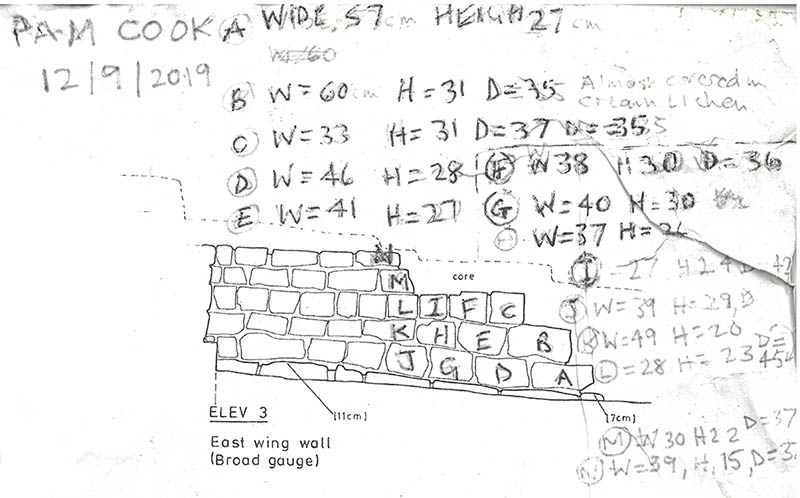 PAM COOK
12/9/2019
A WIDE 57cm HEIGH 27cm
B W=60cm H=31 D=35 Almost covered in
cream Lichen
C W=33 H=31 D=37
D W=46 H=28
E W=41 H=27
F W38 H30 D=36
G W=40 H=30
H W=37 H=26
I =27 H24
J W=39 H=29, D
K W=49 H=20 D=
L =28 H=23
M W30 H22 D=37
N W=39, H.15, D=3
N
M
core
L I F C
K H E B
J G D A
[11cm]
[7cm]
ELEV 3
East wing wall
(Broad gauge)